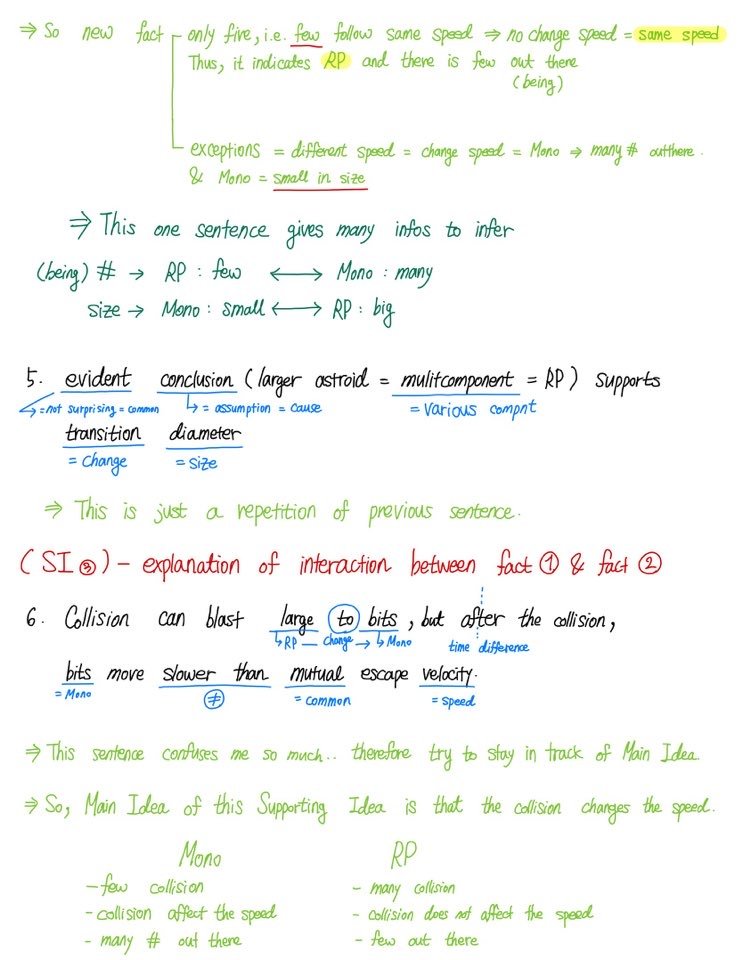 ⇒ So new fact - only five, i.e. few follow same speed ⇒ no change speed = same speed
Thus, it indicates RP and there is few out there
(being)
exceptions = different speed = change speed = Mono ⇒ many # outthere.
& Mono = small in size
⇒ This one sentence gives many infos to infer
(being) # → RP : few ⟷ Mono : many
size → Mono : small ⟷ RP : big
5. evident conclusion (larger astroid = mulitcomponent = RP) supports
↳ = not surprising = common ↳ = assumption = cause = various compnt
transition diameter
= change = size
⇒ This is just a repetition of previous sentence.
(SI ③) - explanation of interaction between fact ① & fact ②
6. Collision can blast large to bits, but after the collision,
↳ RP — change → ↳ Mono time difference
bits move slower than mutual escape velocity.
= Mono ≠ = common = speed
⇒ This sentence confuses me so much.. therefore try to stay in track of Main Idea.
⇒ So, Main Idea of this Supporting Idea is that the collision changes the speed.
Mono RP
- few collision - many collision
- collision affect the speed - collision does not affect the speed
- many # out there - few out there